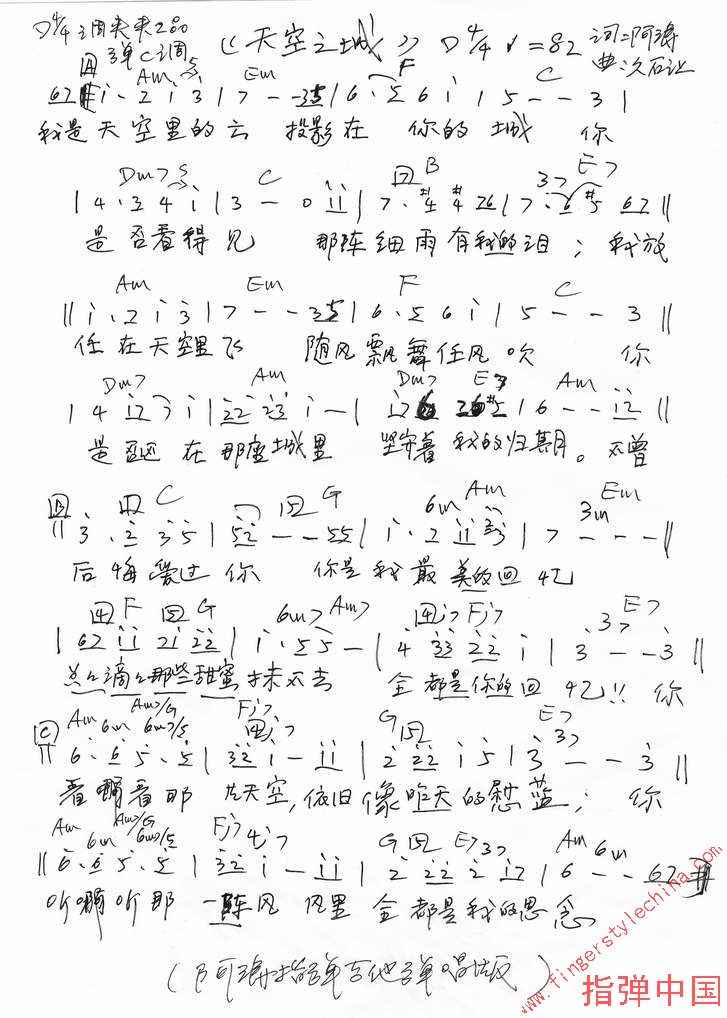 D4/4调夹夹2品
弹C调 《天空之城》 D4/4 ♩=82 词:阿涛
曲:次石让
A Am Em F C
67 | i· 2 i 3 | 7 - - 35 | 6· 5 6 i | 5 - - 3 |
我是天空里的云 投影在 你的 城 你
Dm7 C B E7
| 4· 3 4 i | 3 - 0 ii | 7· #4 #4 76 | 7· 6 #5 67 ||
是否看得见 那阵细雨有我的泪; 我放
Am Em F C
|| i· 2 i 3 | 7 - - 35 | 6· 5 6 i | 5 - - 3 ||
任在天空里飞 随风飘舞任风吹 你
Dm7 Am Dm7 E7 Am
| 4 i7 7 i | 22 23 i - | 6 - - i2 ||
是否还在那座城里 坚守着我的归期。不曾
B C G 6m Am Em
|| 3· 2 35 | 52 - - 55 | i· 2 ii 3 | 7 - - - ||
后悔爱过你 你是我最美的回忆
F G 6m7 Am7 4i7 Fj7 E7
| 67 ii 2i 22 | i· 55 - | 4 33 22 i | 3 - - 3 ||
点点滴滴那些甜蜜抹不去 全都是你的回忆!! 你
C Am 6m Am7/G 6m7/5 Fj7 G E7
|| 6· 6 5· 5 | 32 i - ii | 2 22 i 5 | 3 - - 3 ||
看啊看那 片天空,依旧像昨天的蔚蓝; 你
Am 6m Am/G 6m7/5 Fj7 4j7 G E7 Am 6m
|| 6· 6 5· 5 | 32 i - ii | 2 22 2 i7 | 6 - - 67 ||
听啊听那 一阵风 风里 全都是我的思念
(阿涛指弹吉他弹唱版)
www.fingerstylechina.com
指弹中国